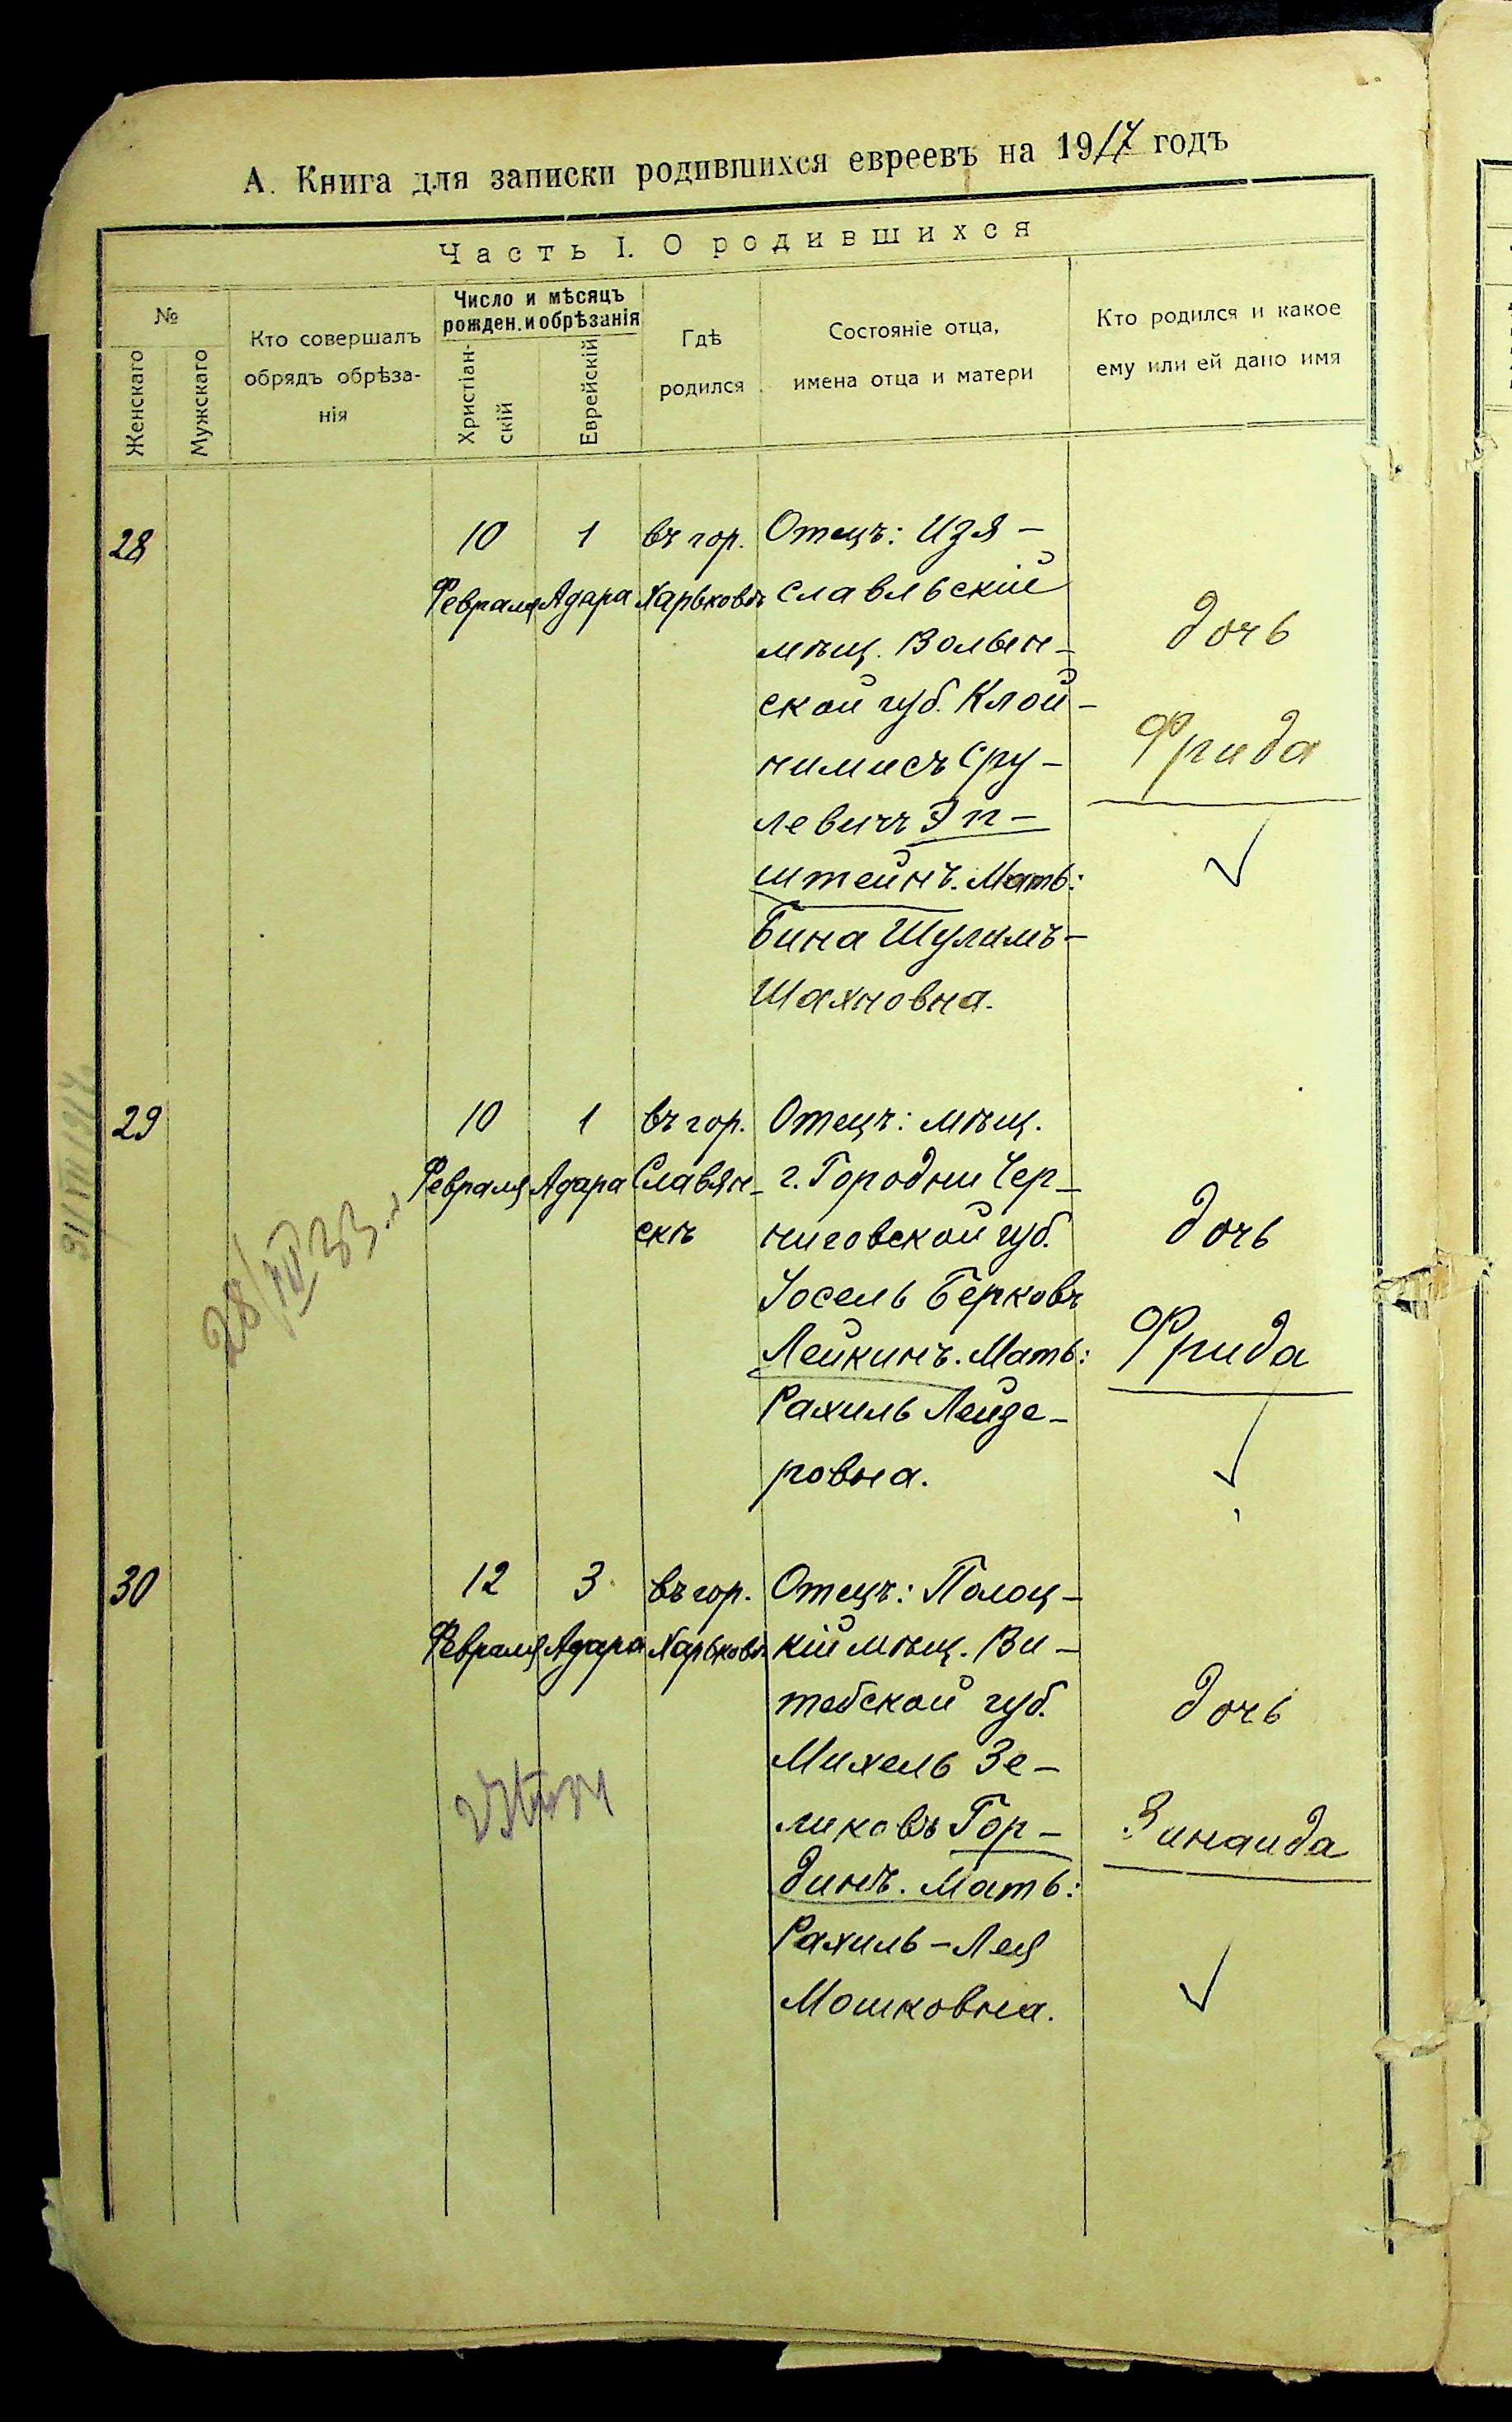 А. Книга для записки родившихся евреевъ на 1917 годъ
Часть I. О родившихся
№
Женскаго
Мужскаго
Кто совершалъ
обрядъ обрѣза-
нія
Число и мѣсяцъ
рожден. и обрѣзанія
Христіан-
скій
Еврейскій
Гдѣ
родился
Состояніе отца,
имена отца и матери
Кто родился и какое
ему или ей дано имя
28
10
Февраля
1
Адара
въ гор.
Харьковѣ
Отецъ: Изя-
славльскій
мѣщ. Волын-
ской губ. Клой-
нимисъ Сру-
левичъ Эп-
штейнъ. Мать:
Бина Шулимъ-
Шахновна.
дочь
Фрида
29
10
Февраля
1
Адара
въ гор.
Славян-
скѣ
Отецъ: мѣщ.
г. Городни Чер-
ниговской губ.
Іосель Берковъ
Лейкинъ. Мать:
Рахиль Лейзе-
ровна.
дочь
Фрида
28/III 33.
30
12
Февраля
3
Адара
въ гор.
Харьковѣ
Отецъ: Полоц-
кій мѣщ. Ви-
тебской губ.
Михель Зе-
ликовъ Гор-
динъ. Мать:
Рахиль-Лея
Мошковна.
дочь
Зинаида